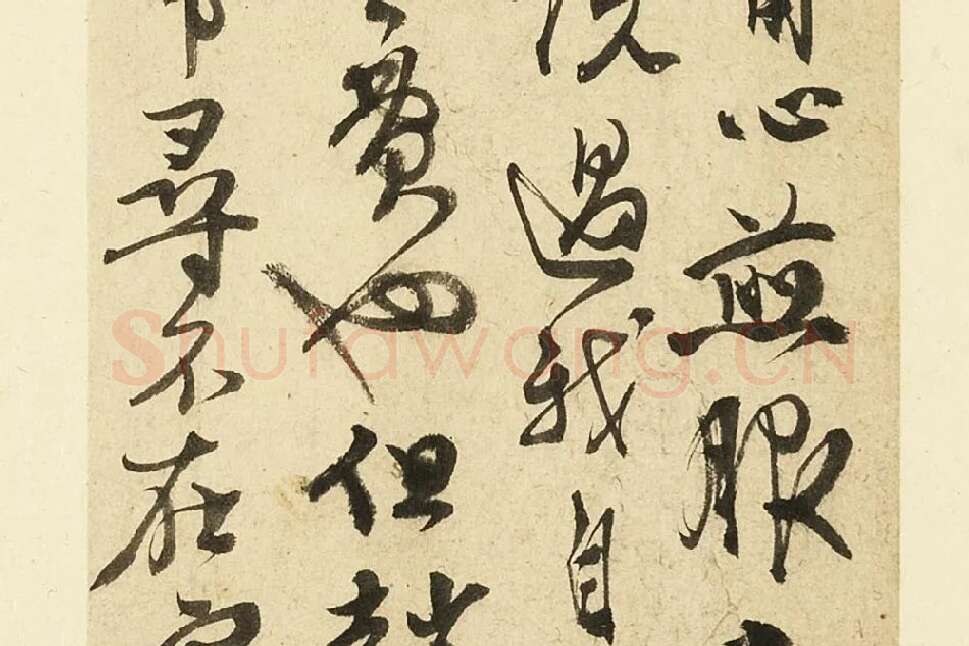 心煎服
過我自
費也但
尋不在
Shufawang.CN